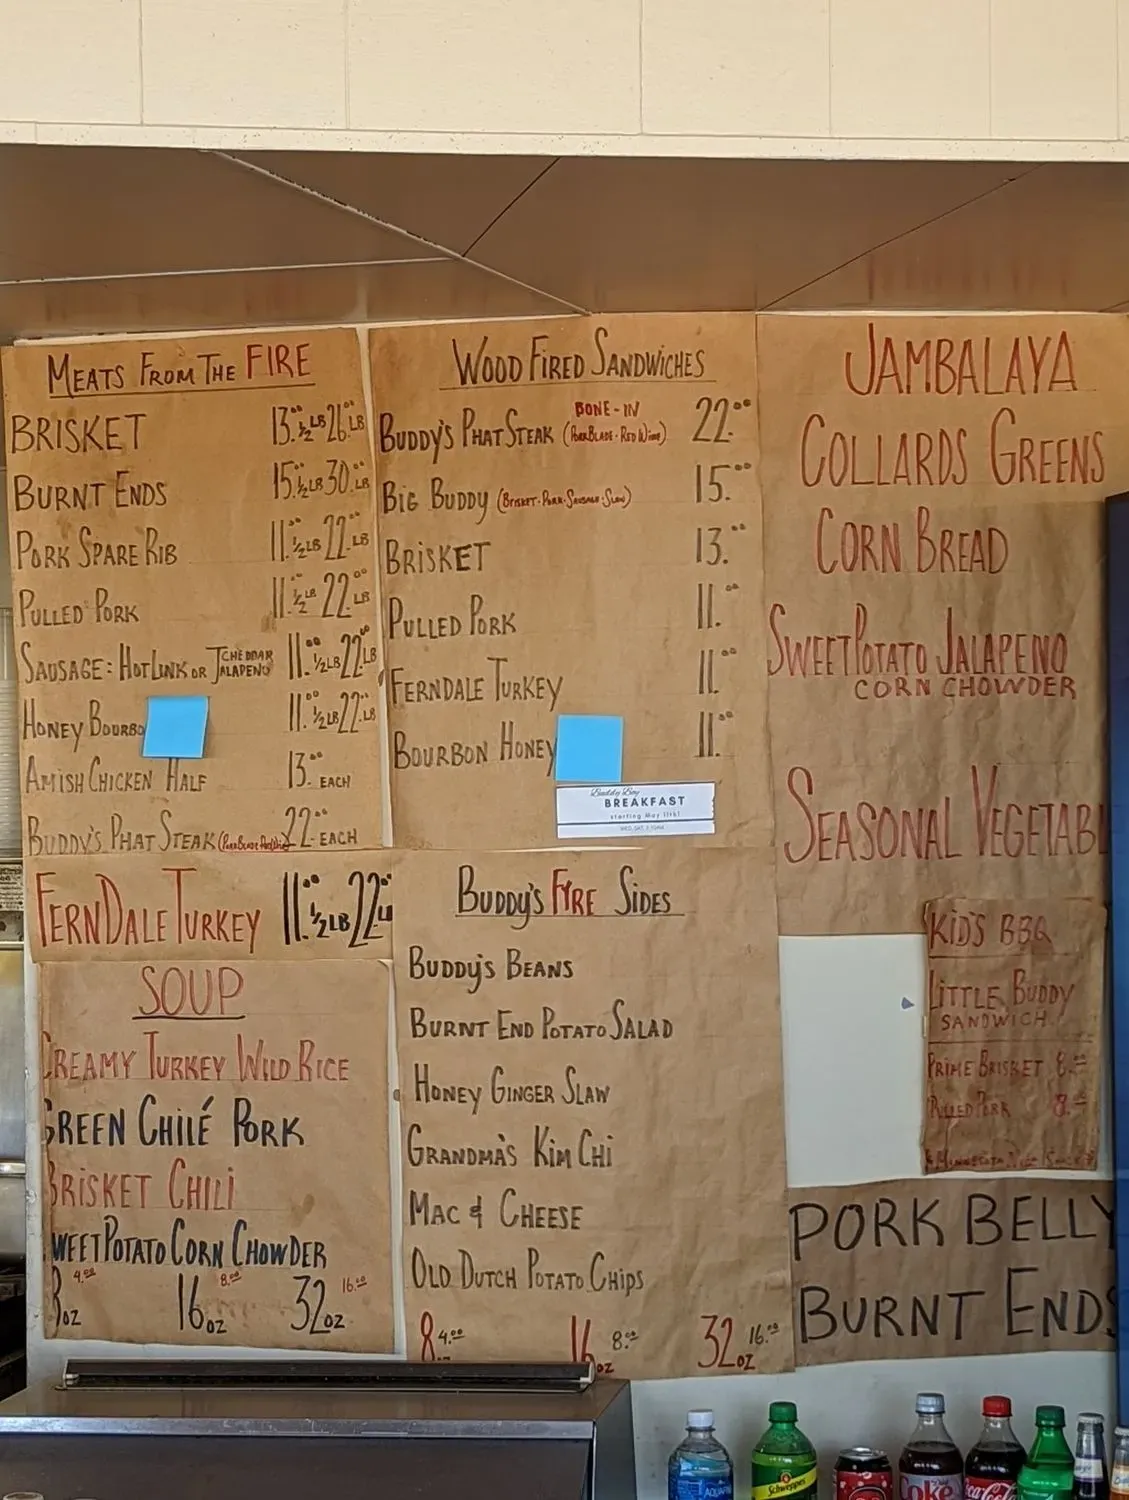 MEATS FROM THE FIRE
BRISKET 13.00 1/2 LB 26.00 LB
BURNT ENDS 15.00 1/2 LB 30.00 LB
PORK SPARE RIB 11.00 1/2 LB 22.00 LB
PULLED PORK 11.00 1/2 LB 22.00 LB
SAUSAGE: HOT LINK OR CHEDDAR JALAPENO 11.00 1/2 LB 22.00 LB
HONEY BOURBO 11.00 1/2 LB 22.00 LB
AMISH CHICKEN HALF 13.00 EACH
BUDDY'S PHAT STEAK 22.00 EACH
FERNDALE TURKEY 11.00 1/2 LB 22.00 L
SOUP
CREAMY TURKEY WILD RICE
GREEN CHILÉ PORK
BRISKET CHILI
WEET POTATO CORN CHOWDER
8 OZ 4.00 16 OZ 8.00 32 OZ 16.00
WOOD FIRED SANDWICHES
BUDDY'S PHAT STEAK BONE-IN (PORK BLADE - RED WINE) 22.00
BIG BUDDY (BRISKET-PORK-SAUSAGE-SLAW) 15.00
BRISKET 13.00
PULLED PORK 11.00
FERNDALE TURKEY 11.00
BOURBON HONEY 11.00
Buddy Boy
BREAKFAST
starting May 11th!
BUDDY'S FYRE SIDES
BUDDY'S BEANS
BURNT END POTATO SALAD
HONEY GINGER SLAW
GRANDMA'S KIM CHI
MAC & CHEESE
OLD DUTCH POTATO CHIPS
8 4.00 16 OZ 8.00 32 OZ 16.00
JAMBALAYA
COLLARDS GREENS
CORN BREAD
SWEET POTATO JALAPENO
CORN CHOWDER
SEASONAL VEGETABL
KID'S BBQ
LITTLE BUDDY
SANDWICH
PRIME BRISKET 8.00
PULLED PORK 8.00
PORK BELLY
BURNT ENDS
AQUAFINA
Schweppes
Coke
Coca-Cola